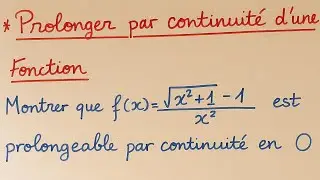 * Prolonger par continuité d'une
Fonction
Montrer que f(x)=(√(x²+1) - 1)/x² est
prolongeable par continuité en 0